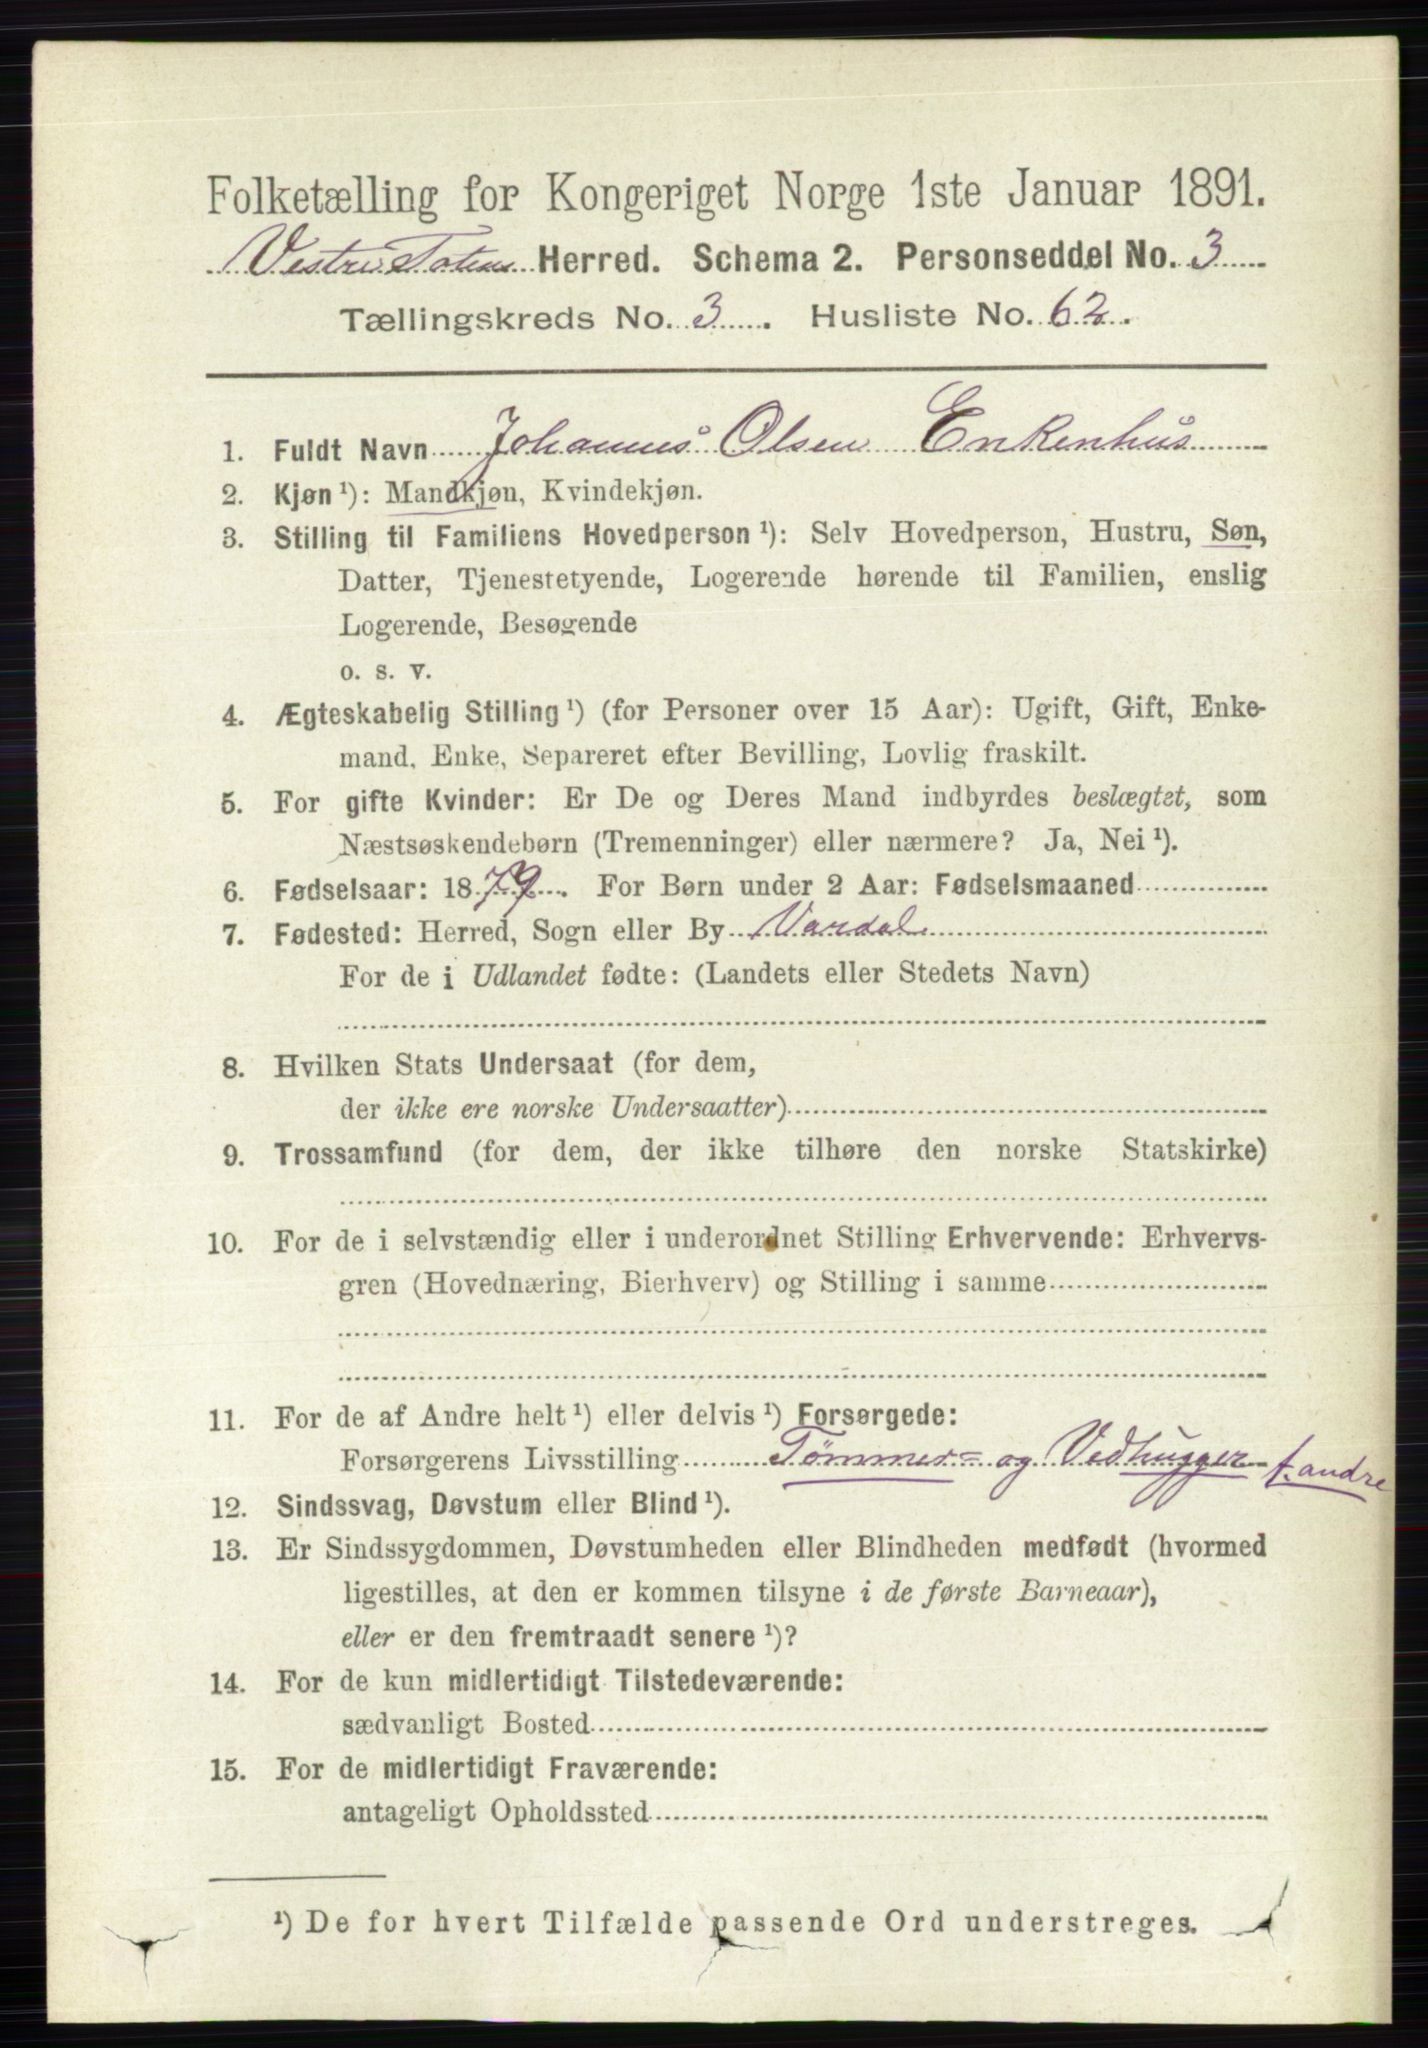 Folketælling for Kongeriget Norge 1ste Januar 1891.
Vestre Toten Herred. Schema 2. Personseddel No. 3
Tællingskreds No. 3. Husliste No. 62.
1. Fuldt Navn Johannes Olsen Enkenhus
2. Kjøn ¹): Mandkjøn, Kvindekjøn.
3. Stilling til Familiens Hovedperson ¹): Selv Hovedperson, Hustru, Søn,
Datter, Tjenestetyende, Logerende hørende til Familien, enslig
Logerende, Besøgende
o. s. v.
4. Ægteskabelig Stilling ¹) (for Personer over 15 Aar): Ugift, Gift, Enke-
mand, Enke, Separeret efter Bevilling, Lovlig fraskilt.
5. For gifte Kvinder: Er De og Deres Mand indbyrdes beslægtet, som
Næstsøskendebørn (Tremenninger) eller nærmere? Ja, Nei ¹).
6. Fødselsaar: 1879. For Børn under 2 Aar: Fødselsmaaned
7. Fødested: Herred, Sogn eller By Vardal
For de i Udlandet fødte: (Landets eller Stedets Navn)
8. Hvilken Stats Undersaat (for dem,
der ikke ere norske Undersaatter)
9. Trossamfund (for dem, der ikke tilhøre den norske Statskirke)
10. For de i selvstændig eller i underordnet Stilling Erhvervende: Erhvervs-
gren (Hovednæring, Bierhverv) og Stilling i samme
11. For de af Andre helt ¹) eller delvis ¹) Forsørgede:
Forsørgerens Livsstilling Tømmer= og Vedhugger f. andre
12. Sindssvag, Døvstum eller Blind ¹).
13. Er Sindssygdommen, Døvstumheden eller Blindheden medfødt (hvormed
ligestilles, at den er kommen tilsyne i de første Barneaar),
eller er den fremtraadt senere ¹)?
14. For de kun midlertidigt Tilstedeværende:
sædvanligt Bosted
15. For de midlertidigt Fraværende:
antageligt Opholdssted
¹) De for hvert Tilfælde passende Ord understreges.